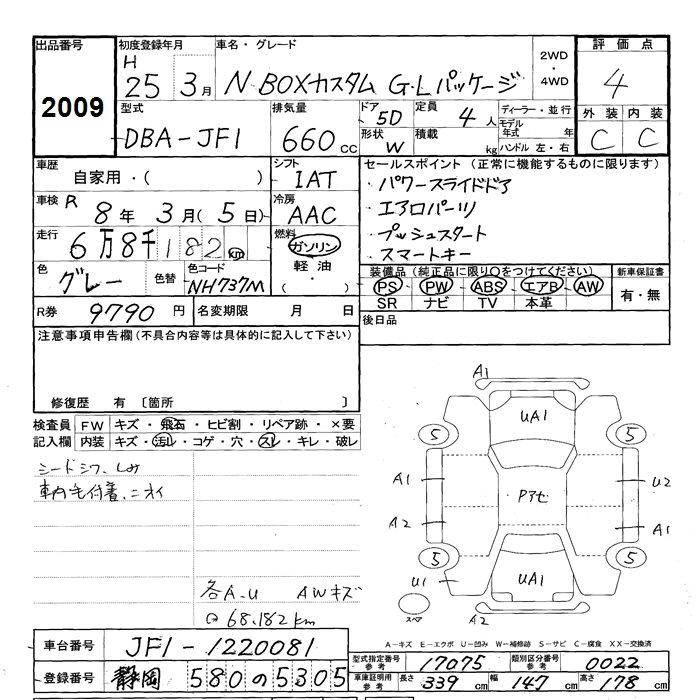 出品番号 初度登録年月 車名・グレード 2WD・4WD 評価点
2009 H 25 3月 N-BOXカスタム G・Lパッケージ 4
型式 排気量 ドア 5D 定員 4人 ディーラー・並行 外装 内装
DBA-JF1 660cc 形状 W 積載 kg モデル年式 年 C C
ハンドル 左・右
車歴 シフト セールスポイント (正常に機能するものに限ります)
自家用・( ) IAT ・パワースライドドア
車検 R 8年 3月(5日) 冷房 AAC ・エアロパーツ
走行 6万8千182km 燃料 ガソリン ・プッシュスタート
軽油 ・( ) ・スマートキー
色 グレー 色替 色コード NH737M 装備品(純正品に限り○をつけてください) 新車保証書
PS PW ABS エアB AW 有・無
SR ナビ TV 本革
R券 9790円 名変期限 月 日 後日品
注意事項申告欄(不具合内容等は具体的に記入して下さい)
修復歴 有 〔箇所 〕
検査員 FW キズ・飛石・ヒビ割・リペア跡・×要
記入欄 内装 キズ・汚レ・コゲ・穴・スレ・キレ・破レ
シートシワ、しみ
車内毛付着、ニオイ
各A.U AWキズ
68.182km
A1
UA1
5 5
A1 U2
Pアセ
A2 A1
5 5
U1 UA1
スペア A2
A-キズ E-エクボ U-凹み W-補修跡 S-サビ C-腐食 XX-交換済
車台番号 JF1-1220081
型式指定番号 参考 17075 類別区分番号 参考 0022
登録番号 静岡 580 の 5305
車庫証明用 参考 長さ 339cm 幅 147cm 高さ 178cm